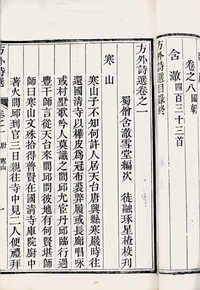 卷之八國朝
含澈四百三十三首
方外詩選目錄終
方外詩選卷之一
蜀僧含澈雪堂編次
徒融琢星槎校刊
寒山
寒山子不知何許人居天台唐興縣寒巖時往
還國清寺以樺皮為冠布裘弊履或長廊唱咏
或村墅歌吟人莫識之閭邱允宦丹邱臨行遇
豐干師言從天台來閭邱問彼地有何賢堪師
師曰寒山文殊拾得普賢在國清寺庫院廚中
著火閭邱到官三日親往寺中見二人便禮拜
方外詩選
卷之一
寒山